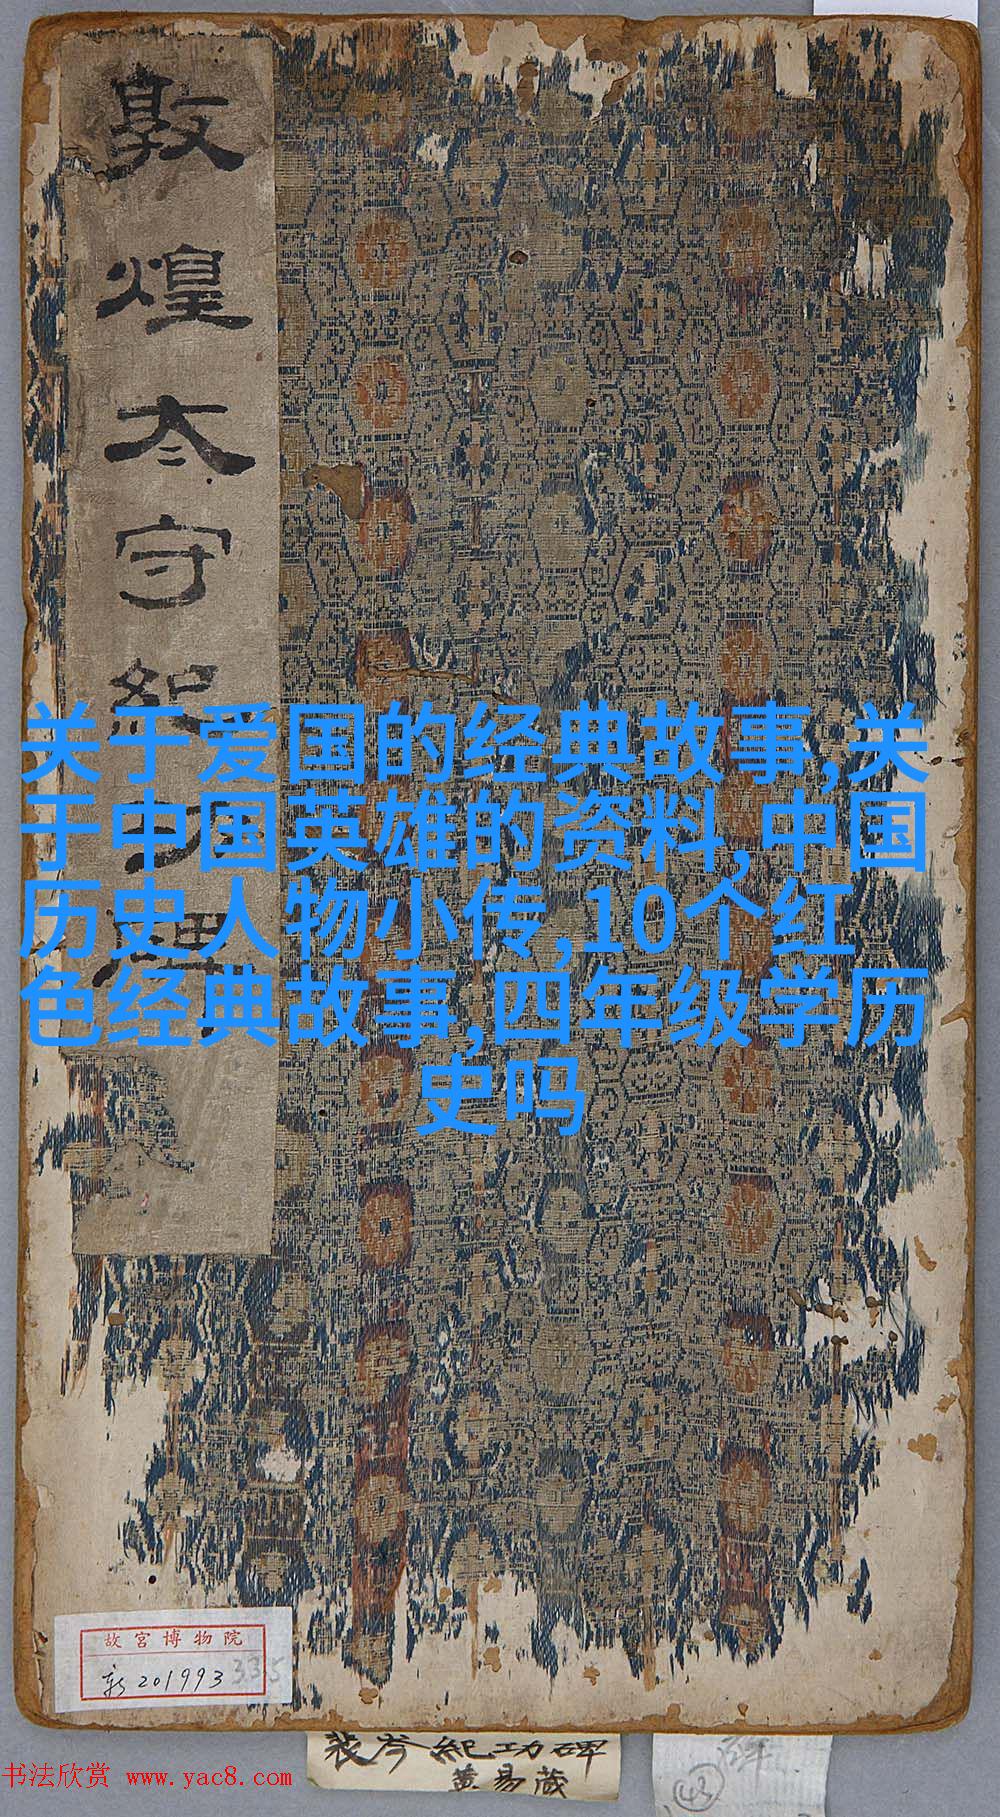 敦煌太守紀功碑
关于爱国的经典故事,关
于中国英雄的资料,中国
历史人物小传,10个红
色经典故事,四年级学历
史吗
故宫博物院
新201993
335
裴岑紀功碑
黄易藏
43
书法欣赏 www.yac8.com